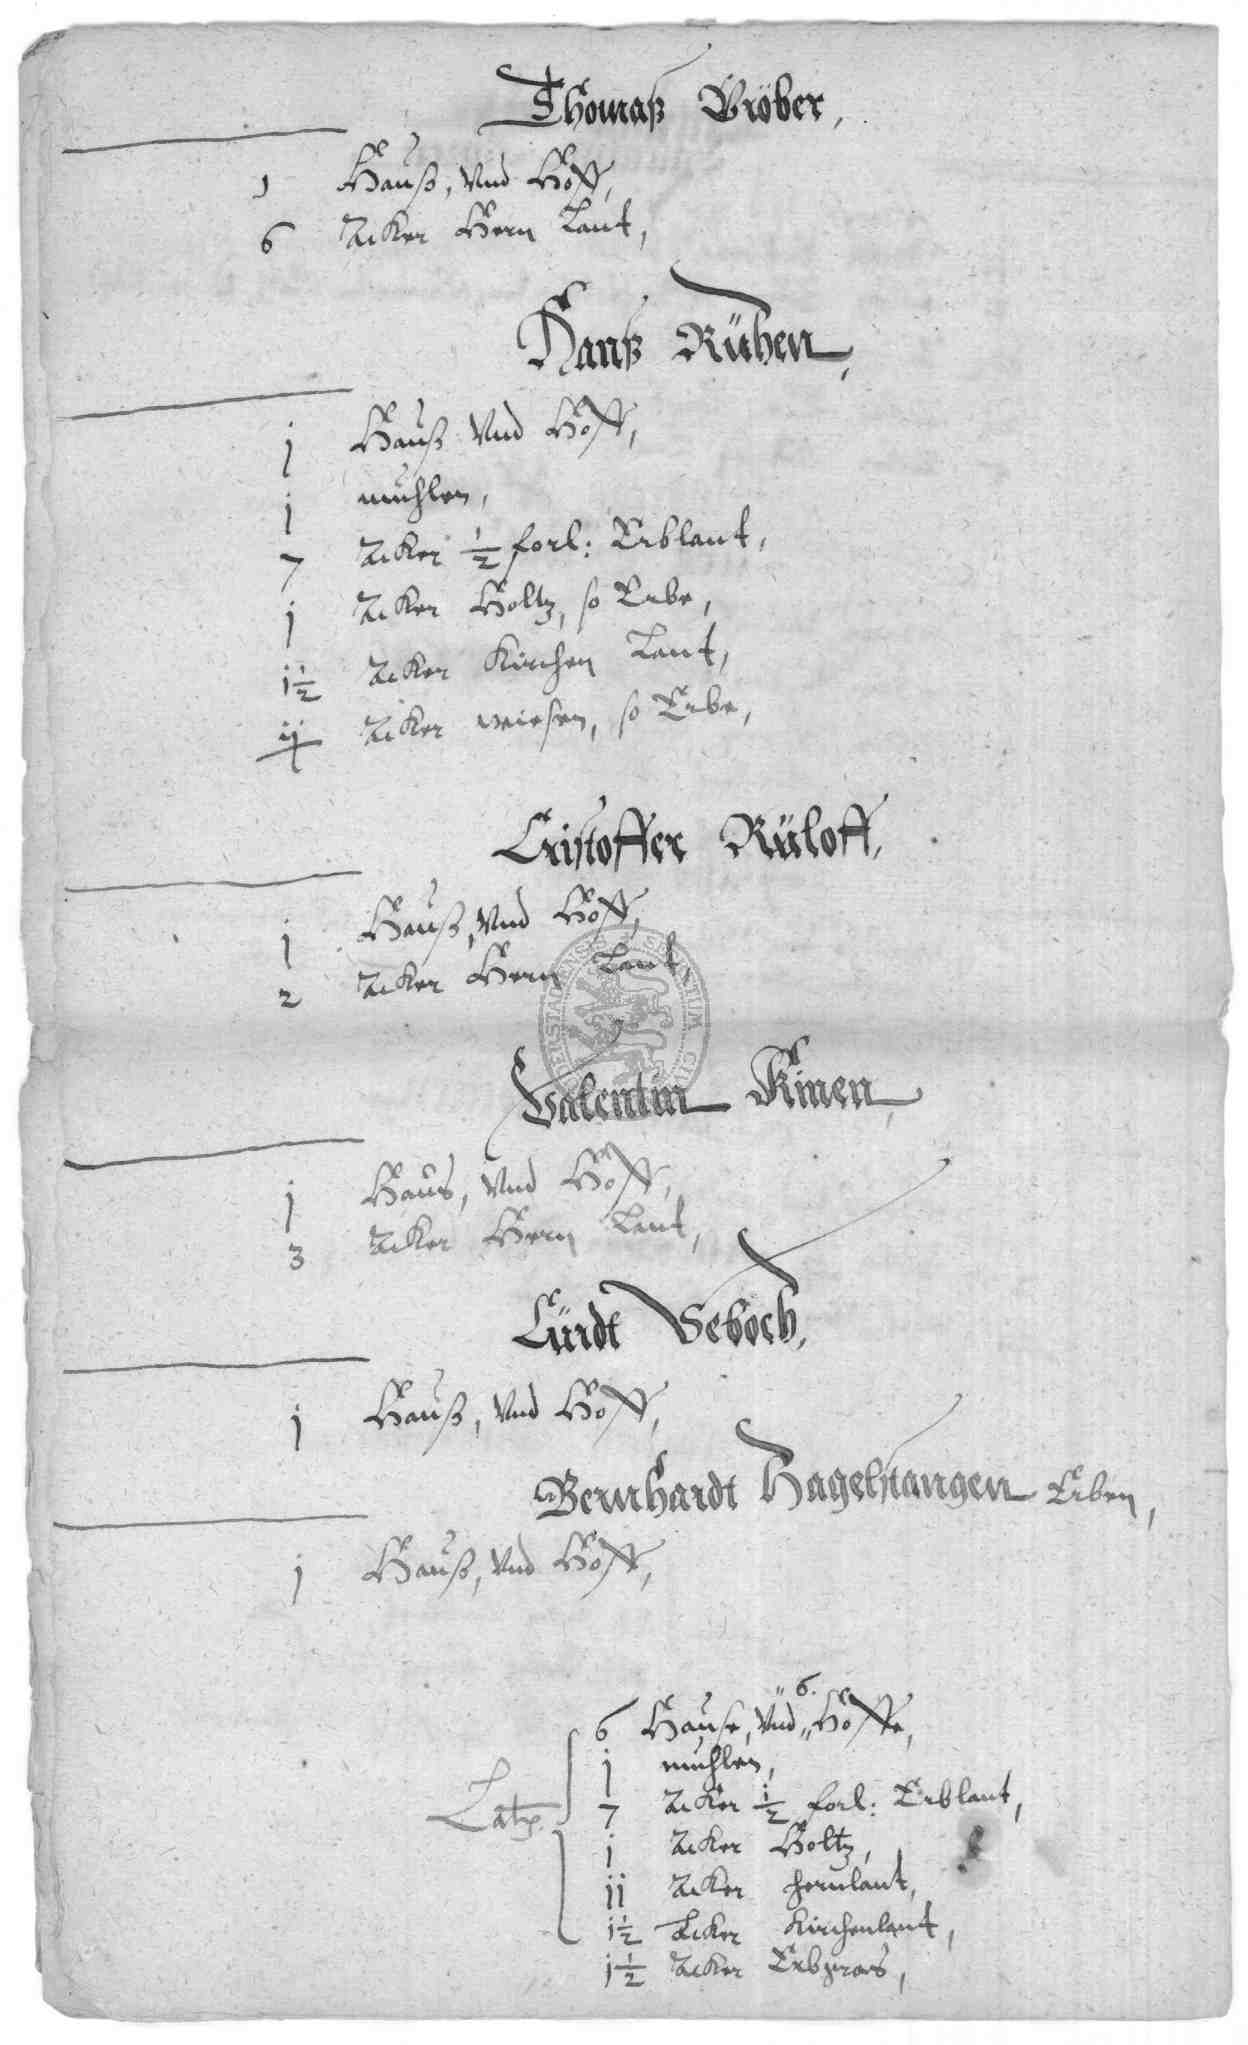 Thomaß Gröber,
1 Hauß, Vnd Hoff,
6 Acker Hern Lant,
Hanß Rühen,
j Hauß Vnd Hoff,
j muhlen,
7 Acker 1/2 forl: Erblant,
j Acker Holtz, so Erbe,
j 1/2 Acker Kirchen Lant,
Acker wiesen, so Erbe,
Cristoffer Rüloff,
j Hauß, Vnd Hoff,
2 Acker Hern Lant
SENATUM
Valentin Kinen,
j Haus, Vnd Hoff,
3 Acker Hern Lant,
Cürdt Seboch,
j Hauß, Vnd Hoff,
Bernhardt Hagelstangen Erben,
j Hauß, Vnd Hoff,
6.
6 Hause, Vnd Hoffe,
j muhlen,
7 Acker 1/2 forl: Erblant,
Latus
j Acker Holtz,
jj Acker hernlant,
j 1/2 Acker Kirchenlant,
j 1/2 Acker Erbgras,